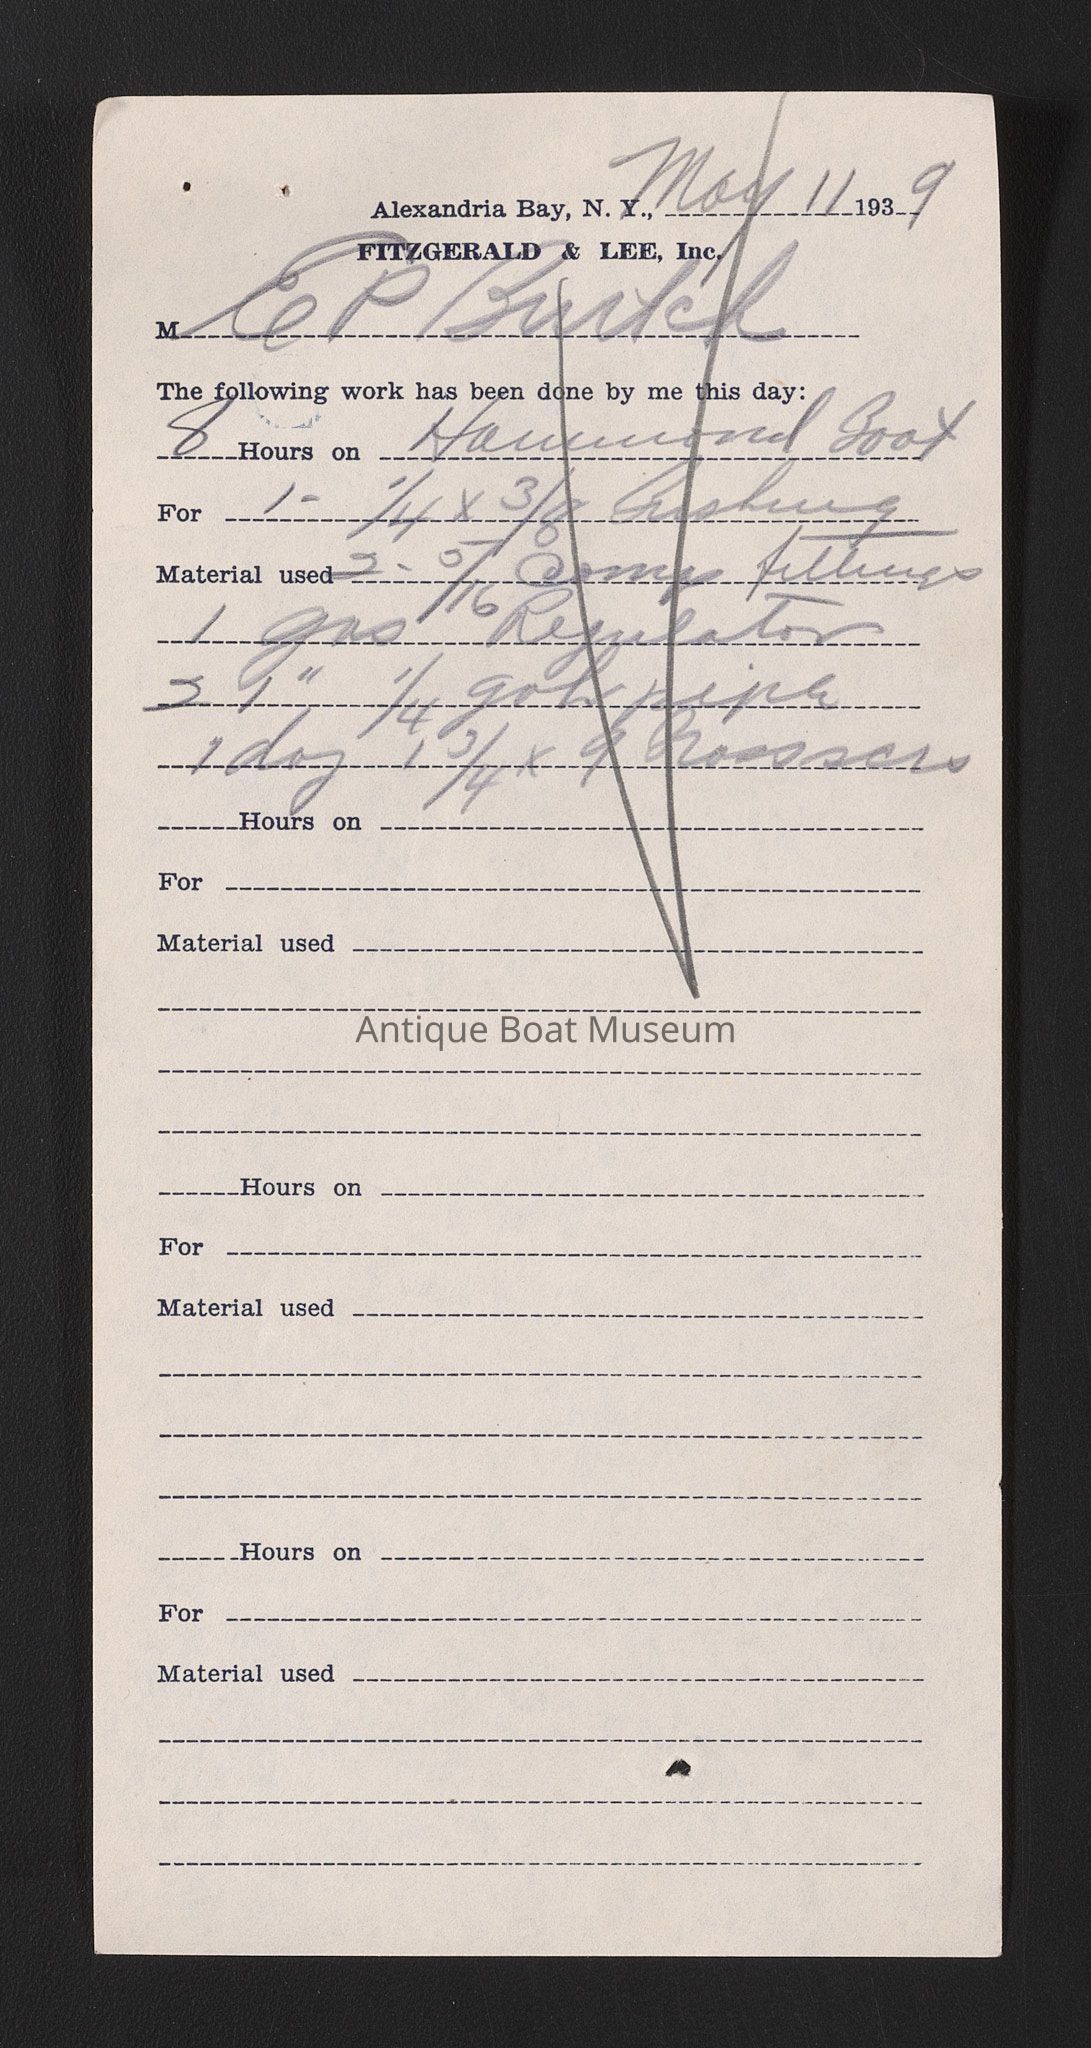 Alexandria Bay, N. Y., May 11 1939
FITZGERALD & LEE, Inc.
M E P Burtch
The following work has been done by me this day:
8 Hours on Hammond Boat
For 1 - 1/4 x 3/8 bushing
Material used 2 - 5/16 Comp fittings
1 gas Regulator
2 1" 1/4 galv pipe
1 doz 1 3/4 x 9
Hours on
For
Material used
Antique Boat Museum
Hours on
For
Material used
Hours on
For
Material used